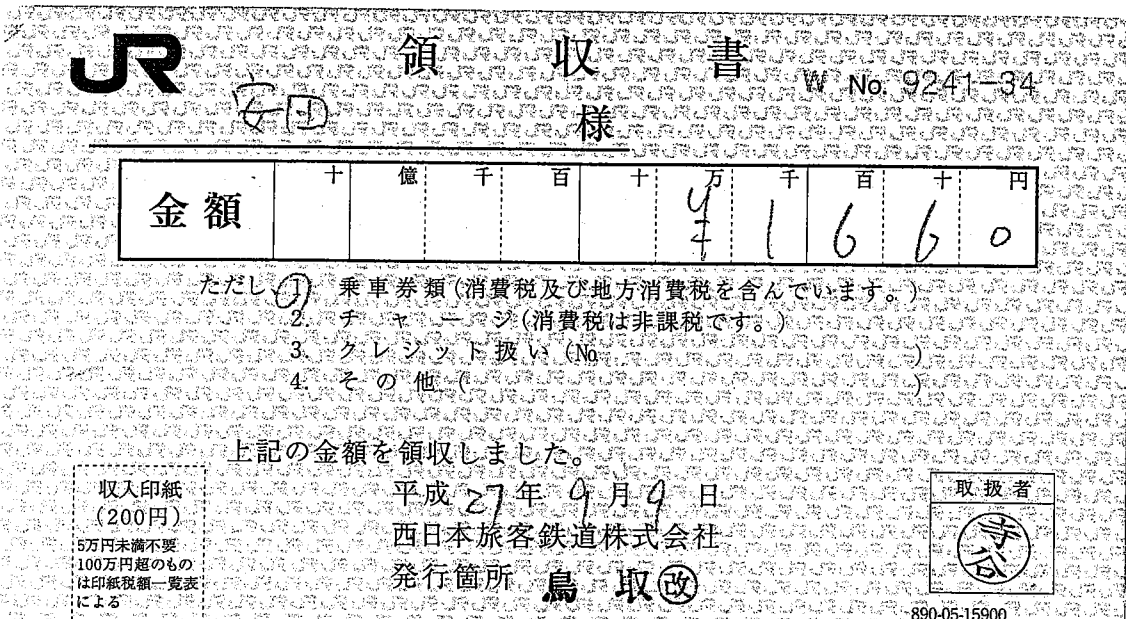 JR 領収書 W No. 9241-34
安田 様
金額 十 億 千 百 十 万 千 百 十 円
¥1660
ただし、1. 乗車券類(消費税及び地方消費税を含んでいます。)
2. チャージ(消費税は非課税です。)
3. クレジット扱い(No. )
4. その他( )
上記の金額を領収しました。
平成 27 年 9 月 9 日
西日本旅客鉄道株式会社
発行箇所 鳥取 改
収入印紙
(200円)
5万円未満不要
100万円超のもの
は印紙税額一覧表
による
取扱者
寺谷
890-05-15900